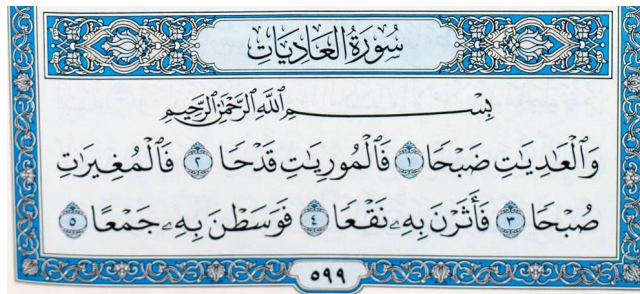 سُورَةُ العَادِيَاتِ
بِسْمِ اللَّهِ الرَّحْمَٰنِ الرَّحِيمِ
وَٱلْعَٰدِيَٰتِ ضَبْحًا ١ فَٱلْمُورِيَٰتِ قَدْحًا ٢ فَٱلْمُغِيرَٰتِ
صُبْحًا ٣ فَأَثَرْنَ بِهِۦ نَقْعًا ٤ فَوَسَطْنَ بِهِۦ جَمْعًا ٥
٥٩٩